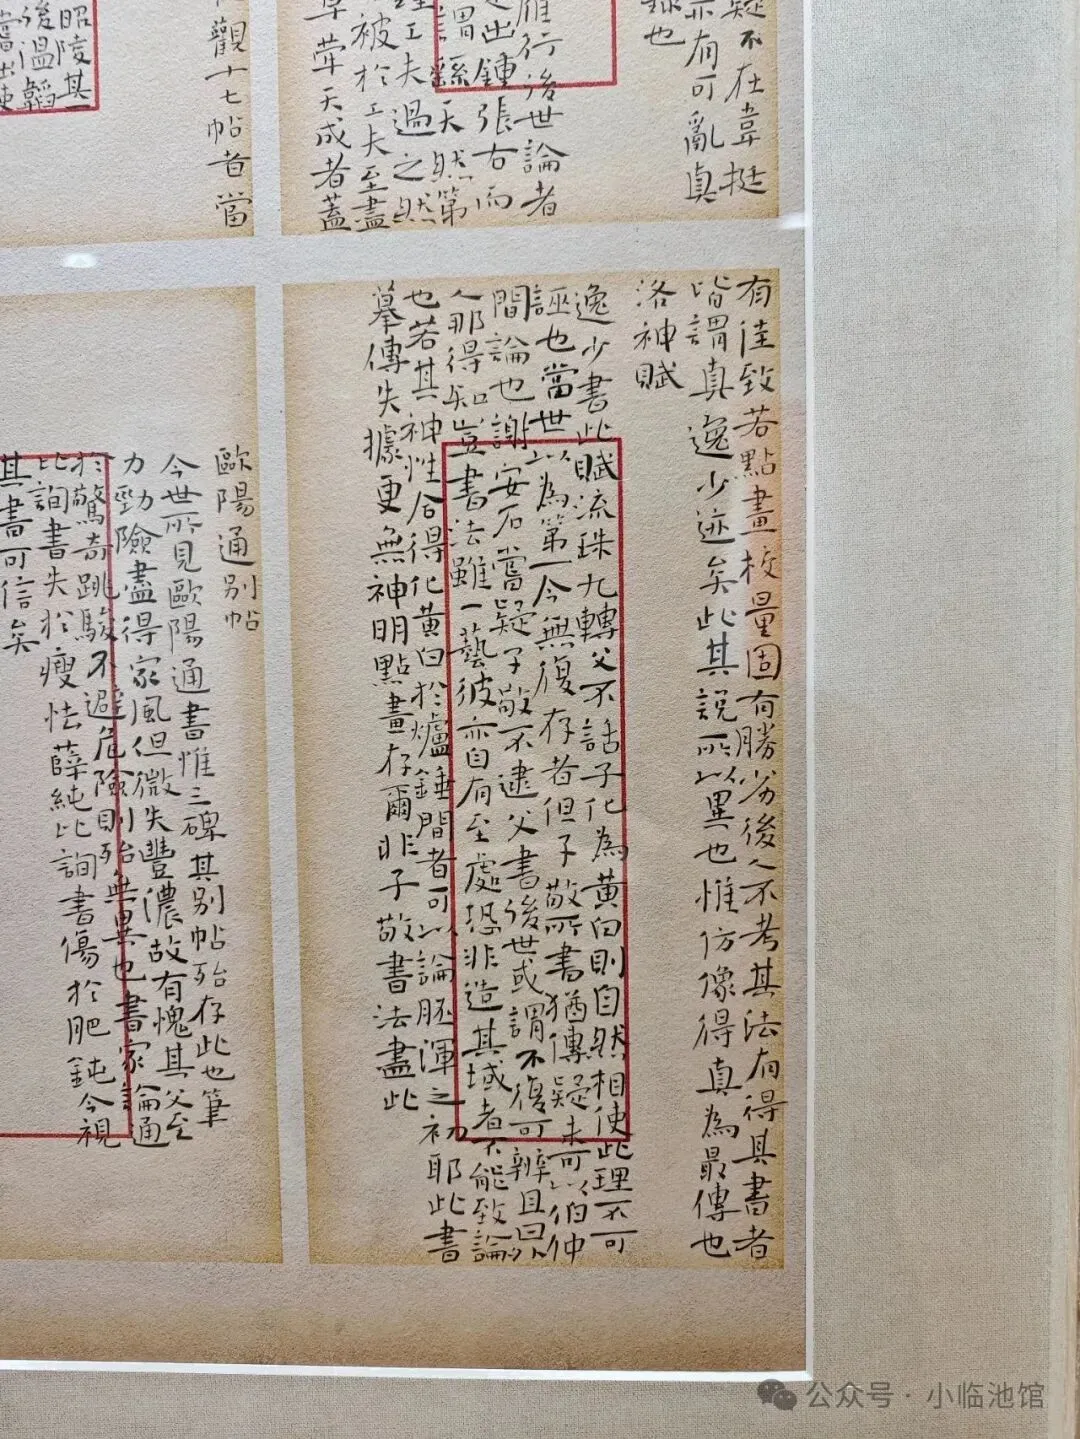 疑不在韋挺
亦有可亂真
也
雁行後世論者
出鍾張右而
謂 天然第
工夫過之然
被於工夫至盡
葦天成者蓋
觀十七帖者當
昭陵其
後溫韜
當出
有佳致若點畫校量固有勝劣後人不考其法有得其書者
皆謂真逸少迹矣此其說所以異也惟仿像得真為最傳也
洛神賦
逸少書此賦流珠九轉父不話子化為黃白則自然相使此理不可
誣也當世以為第一今無復存者但子敬所書猶傳疑未可以伯仲
間論也謝安石嘗疑子敬不逮父書後世或謂不復可辨且曰外
人那得知豈書法雖一藝彼亦自有至處恐非造其域者不能致論
也若其神性合得化黃白於爐錘間者可以論胚渾之初耶此書
摹傳失據更無神明點畫存爾非子敬書法盡此
歐陽通別帖
今世所見歐陽通書惟三碑其別帖殆存此也筆
力勁險盡得家風但微失豐濃故有愧其父至
於驚奇跳駿不避危險則殆無異也書家論通
比詢書失於瘦怯薛純比詢書傷於肥鈍今視
其書可信矣
公众号·小临池馆